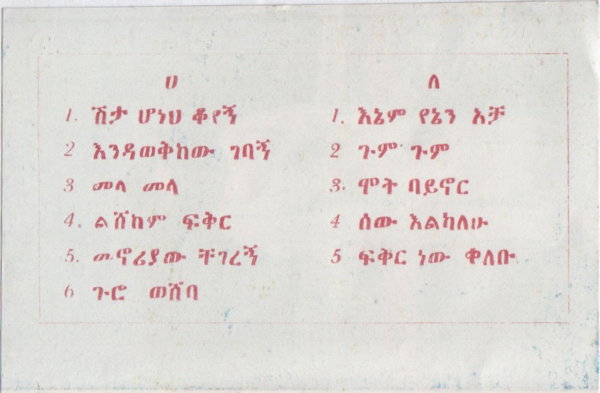 ሀ
1. ሽታ ሆነህ ቆየኝ
2 እንዳወቅከው ገባኝ
3 መላ መላ
4. ልሸከም ፍቅር
5. መኖሪያው ቸገረኝ
6 ጉሮ ወሸባ
ለ
1. እኔም የኔን አቻ
2 ጉም ጉም
3. ሞት ባይኖር
4 ሰው እልካለሁ
5 ፍቅር ነው ቀለቡ